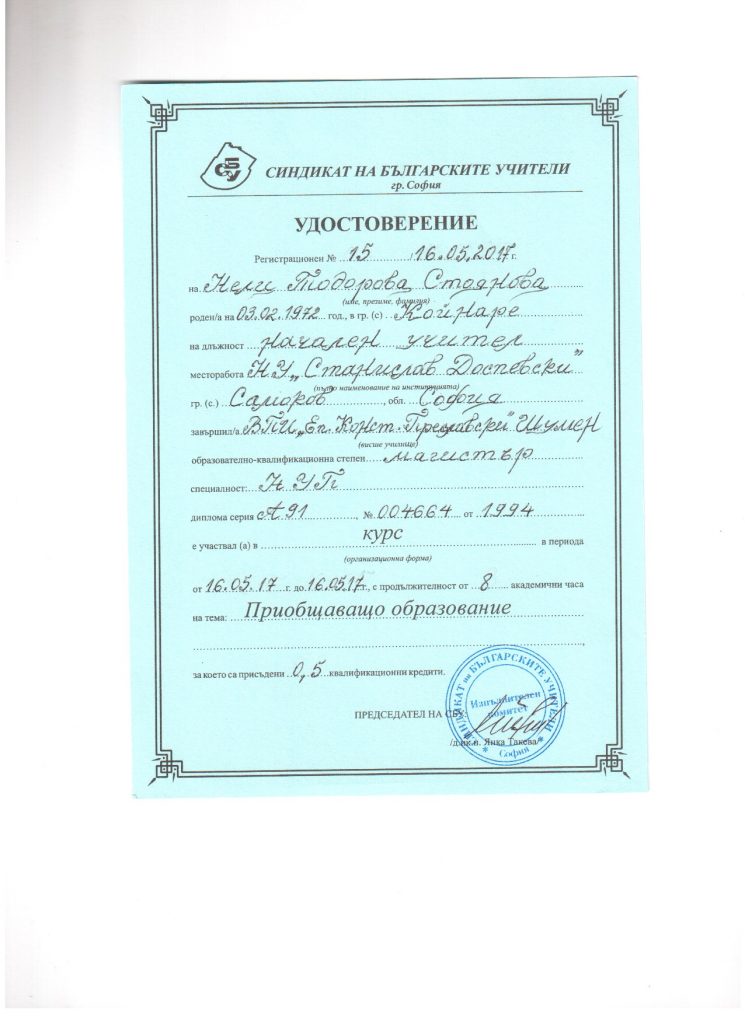 СБУ
СИНДИКАТ НА БЪЛГАРСКИТЕ УЧИТЕЛИ
гр. София
УДОСТОВЕРЕНИЕ
Регистрационен № 15 / 16.05.2017 г.
на Нели Тодорова Стоянова
(име, презиме, фамилия)
роден/а на 03.02.1972 год., в гр. (с) Койнаре
на длъжност начален учител
месторабота НУ „Станислав Доспевски"
(пълно наименование на институцията)
гр. (с.) Самоков, обл. София
завършил/а ВПИ „Еп. Конст. Преславски" Шумен
(висше училище)
образователно-квалификационна степен магистър
специалност: НУП
диплома серия А 91, № 004664 от 1994
е участвал (а) в курс в периода
(организационна форма)
от 16.05.17 г. до 16.05.17 г., с продължителност от 8 академични часа
на тема: Приобщаващо образование
за което са присъдени 0,5 квалификационни кредити.
ПРЕДСЕДАТЕЛ НА СБУ:
/д.ик.н. Янка Такева/
СИНДИКАТ на БЪЛГАРСКИТЕ УЧИТЕЛИ
Изпълнителен
комитет
* София *